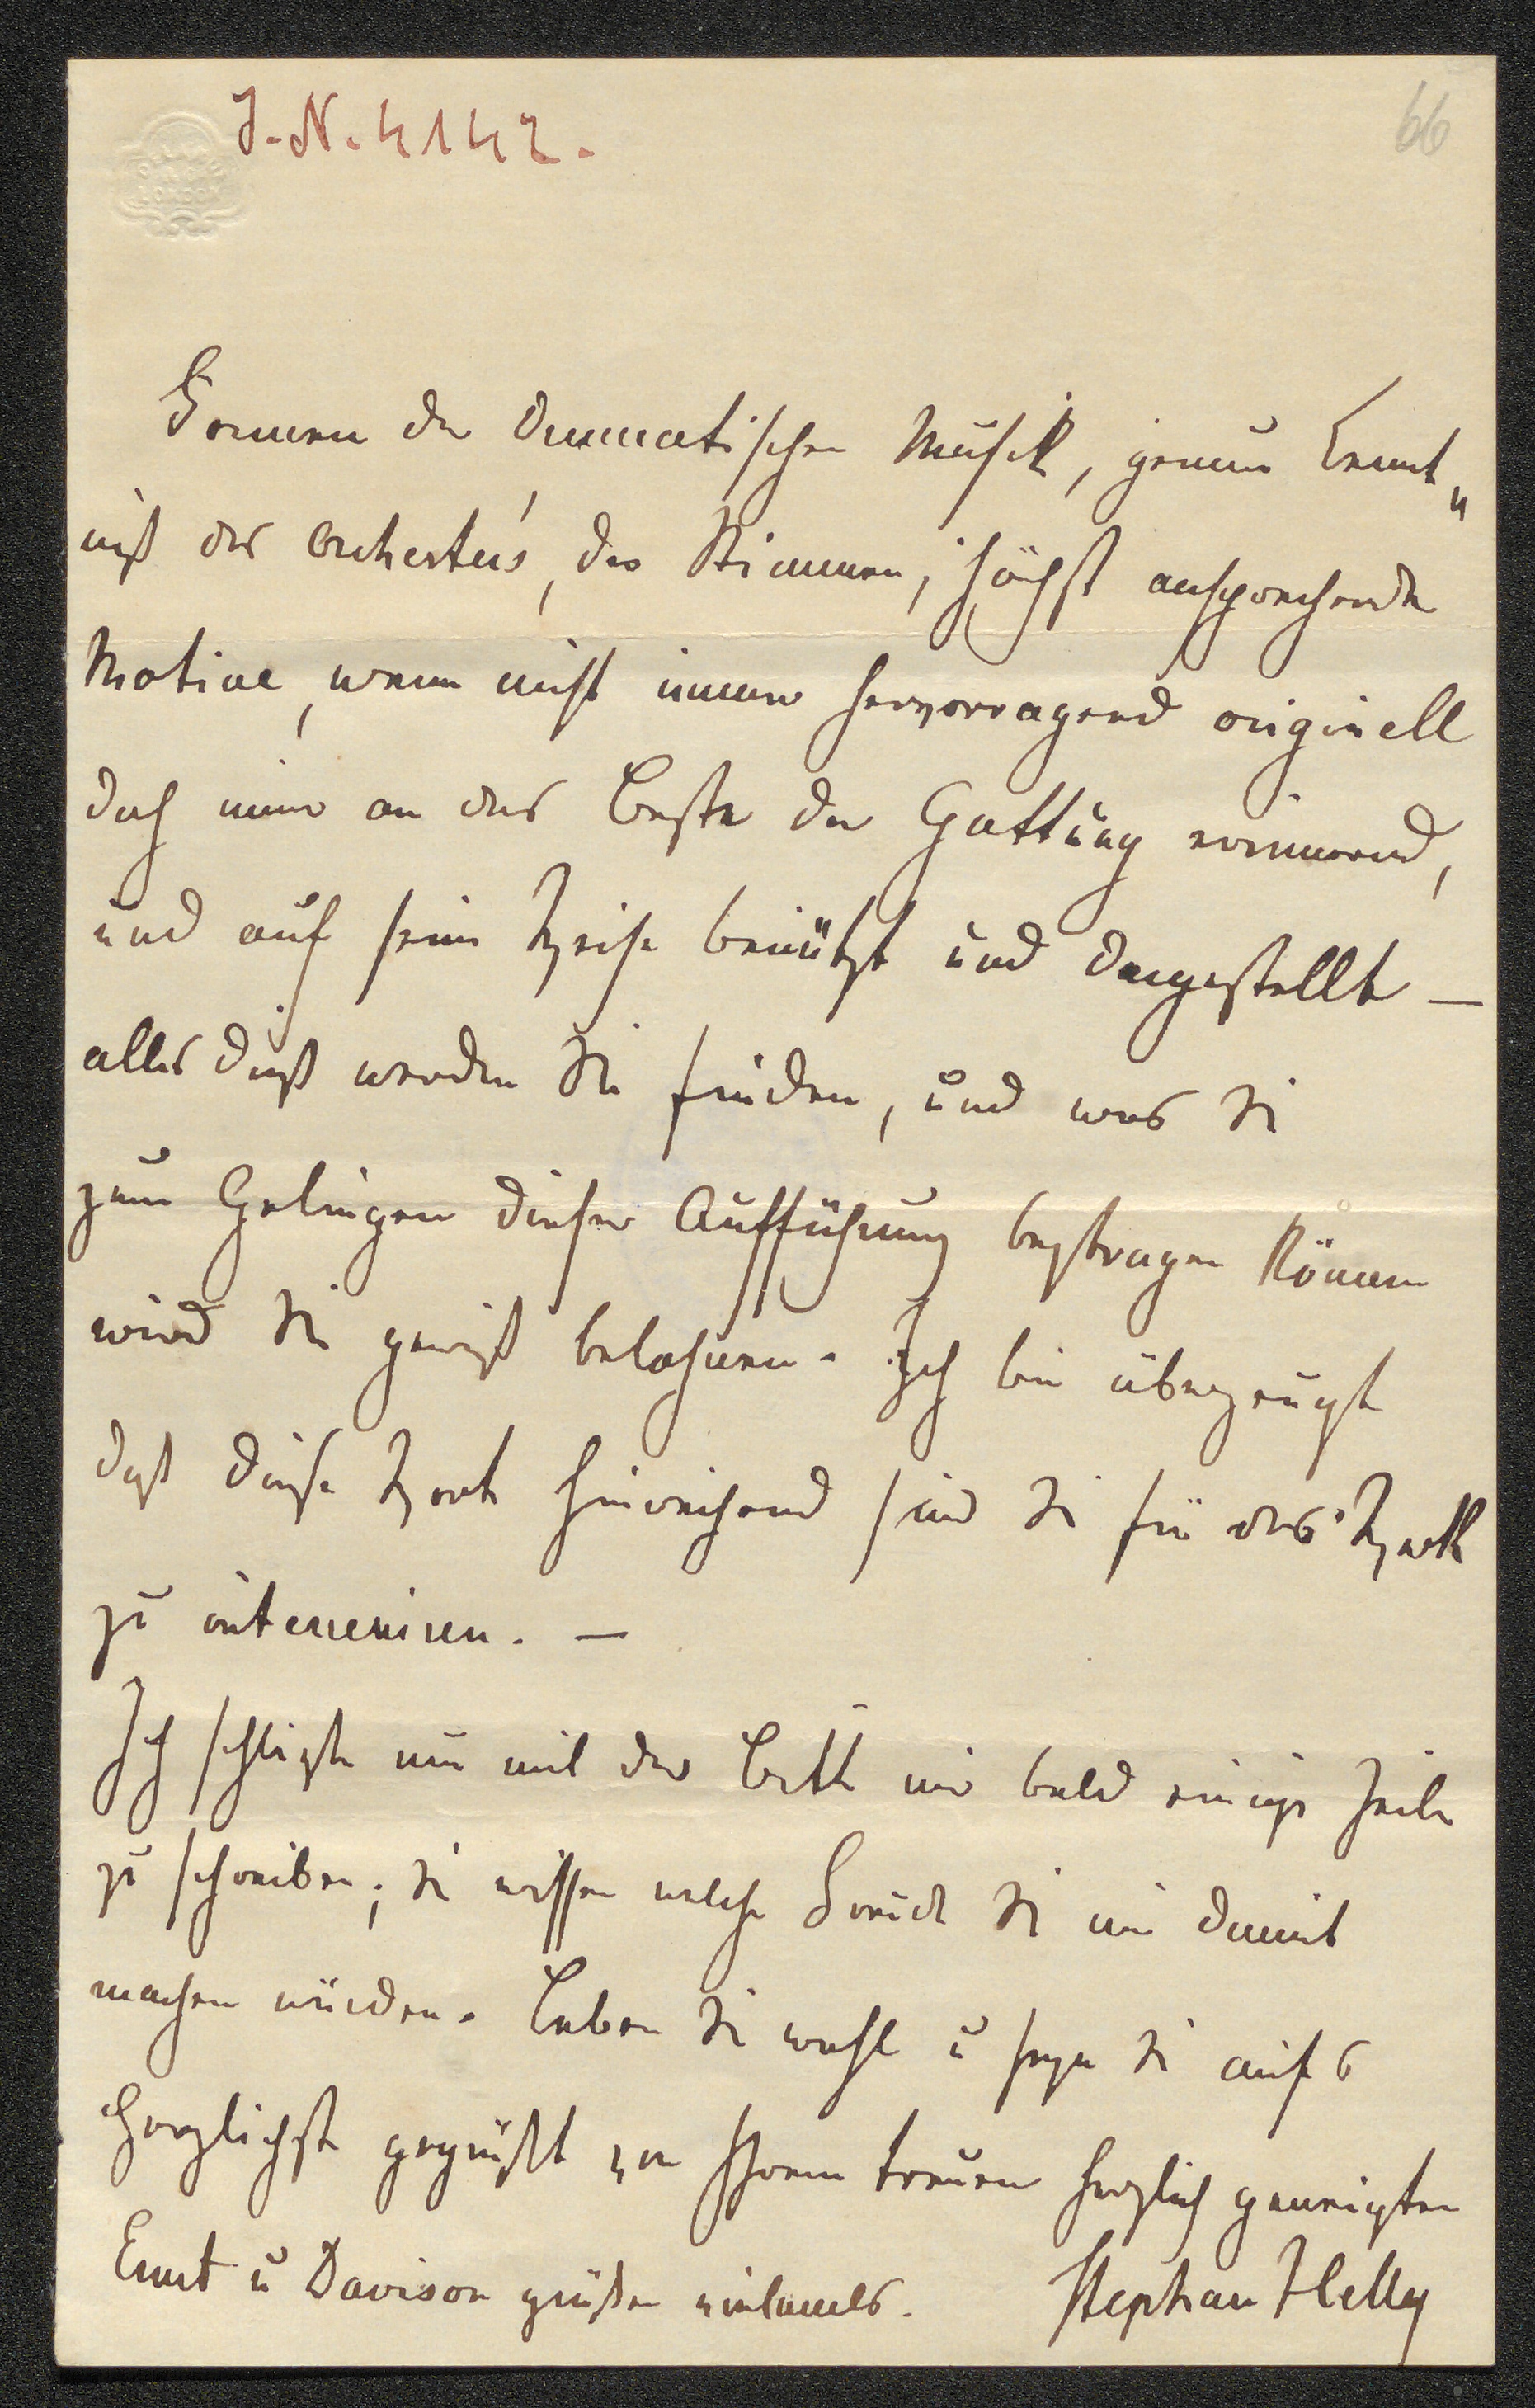 J.-N. 4142.
66
Formen der dramatischen Musik, genaue Kennt„
niß des Orchester's, der Stimmen, höchst ansprechende
Motive, wenn nicht immer hervorragend originell
doch immer an das Beste der Gattung erinnernd,
und auf feine Weise benützt und dargestellt —
alles dieß werden Sie finden, und was Sie
zum Gelingen dieser Aufführung beytragen können
wird Sie gewiß belohnen. Ich bin überzeugt
daß diese Worte hinreichend sind Sie für das Werk
zu interessiren. —
Ich schließe nun mit der Bitte mir bald einige Zeilen
zu schreiben; Sie wissen welche Freude Sie mir damit
machen würden. Leben Sie wohl u seyn Sie aufs
Herzlichste gegrüßt von Ihrem treuen herzlich geneigten
Ernst u Davison grüßen vielmals. Stephen Heller